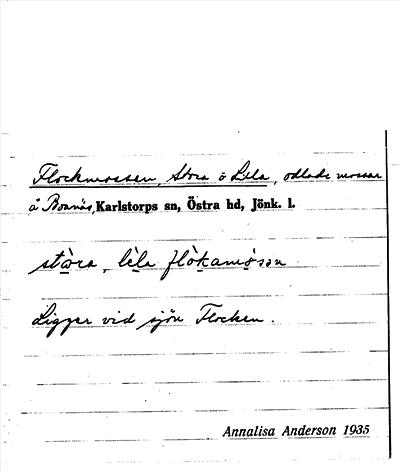 Flockmossen, Stora o Lila, odlade mossar
å Boanäs, Karlstorps sn, Östra hd, Jönk. l.
stòra, lìla flòkamòsən
Ligger vid sjön Flocken.
Annalisa Anderson 1935